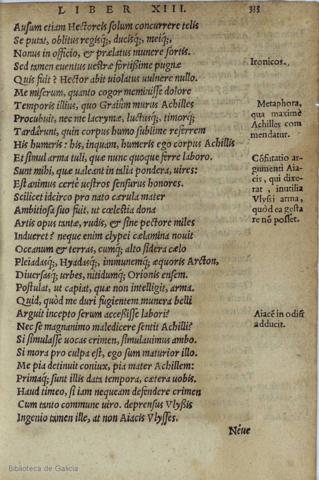 LIBER XIII.
315
Ausum etiam Hectoreis solum concurrere telis
Se putat, oblitus regisq;, ducisq;, meiq;,
Nonus in officio, & prælatus munere sortis.
Sed tamen euentus uestræ fortißime pugnæ
Quis fuit? Hector abit uiolatus uulnere nullo.
Me miserum, quanto cogor meminisse dolore
Temporis illius, quo Graiûm murus Achilles
Procubuit, nec me lacrymæ, luctusq;, timorq;
Tardârunt, quin corpus humo sublime referrem
His humeris: his, inquam, humeris ego corpus Achillis
Et simul arma tuli, quæ nunc quoque ferre laboro.
Sunt mihi, quæ ualeant in talia pondera, uires:
Est animus certè uestros sensurus honores.
Scilicet idcirco pro nato cærula mater
Ambitiosa suo fuit, ut cœlestia dona
Artis opus tantæ, rudis, & sine pectore miles
Indueret? neque enim clypei cælamina nouit
Oceanum & terras, cumq; alto sidera cælo
Pleiadasq;, Hyadasq;, immunemq; æquoris Arcton,
Diuersasq; urbes, nitidumq; Orionis ensem.
Postulat, ut capiat, quæ non intelligit, arma.
Quid, quòd me duri fugientem munera belli
Arguit incepto serum accessisse labori?
Nec se magnanimo maledicere sentit Achilli?
Si simulasse uocas crimen, simulauimus ambo.
Si mora pro culpa est, ego sum maturior illo.
Me pia detinuit coniux, pia mater Achillem:
Primaq; sunt illis data tempora, cætera uobis.
Haud timeo, si iam nequeam defendere crimen
Cum tanto commune uiro. deprensus Vlyßis
Ingenio tamen ille, at non Aiacis Vlysses.
Néue
Ironicos.
Metaphora,
qua maximè
Achilles com
mendatur.
Cōfutatio ar-
gumenti Aia-
cis, qui dixe-
rat, inutilia
Vlyssi arma,
quòd ea gesta
re nō posset.
Aiacē in odiū
adducit.
Biblioteca de Galicia